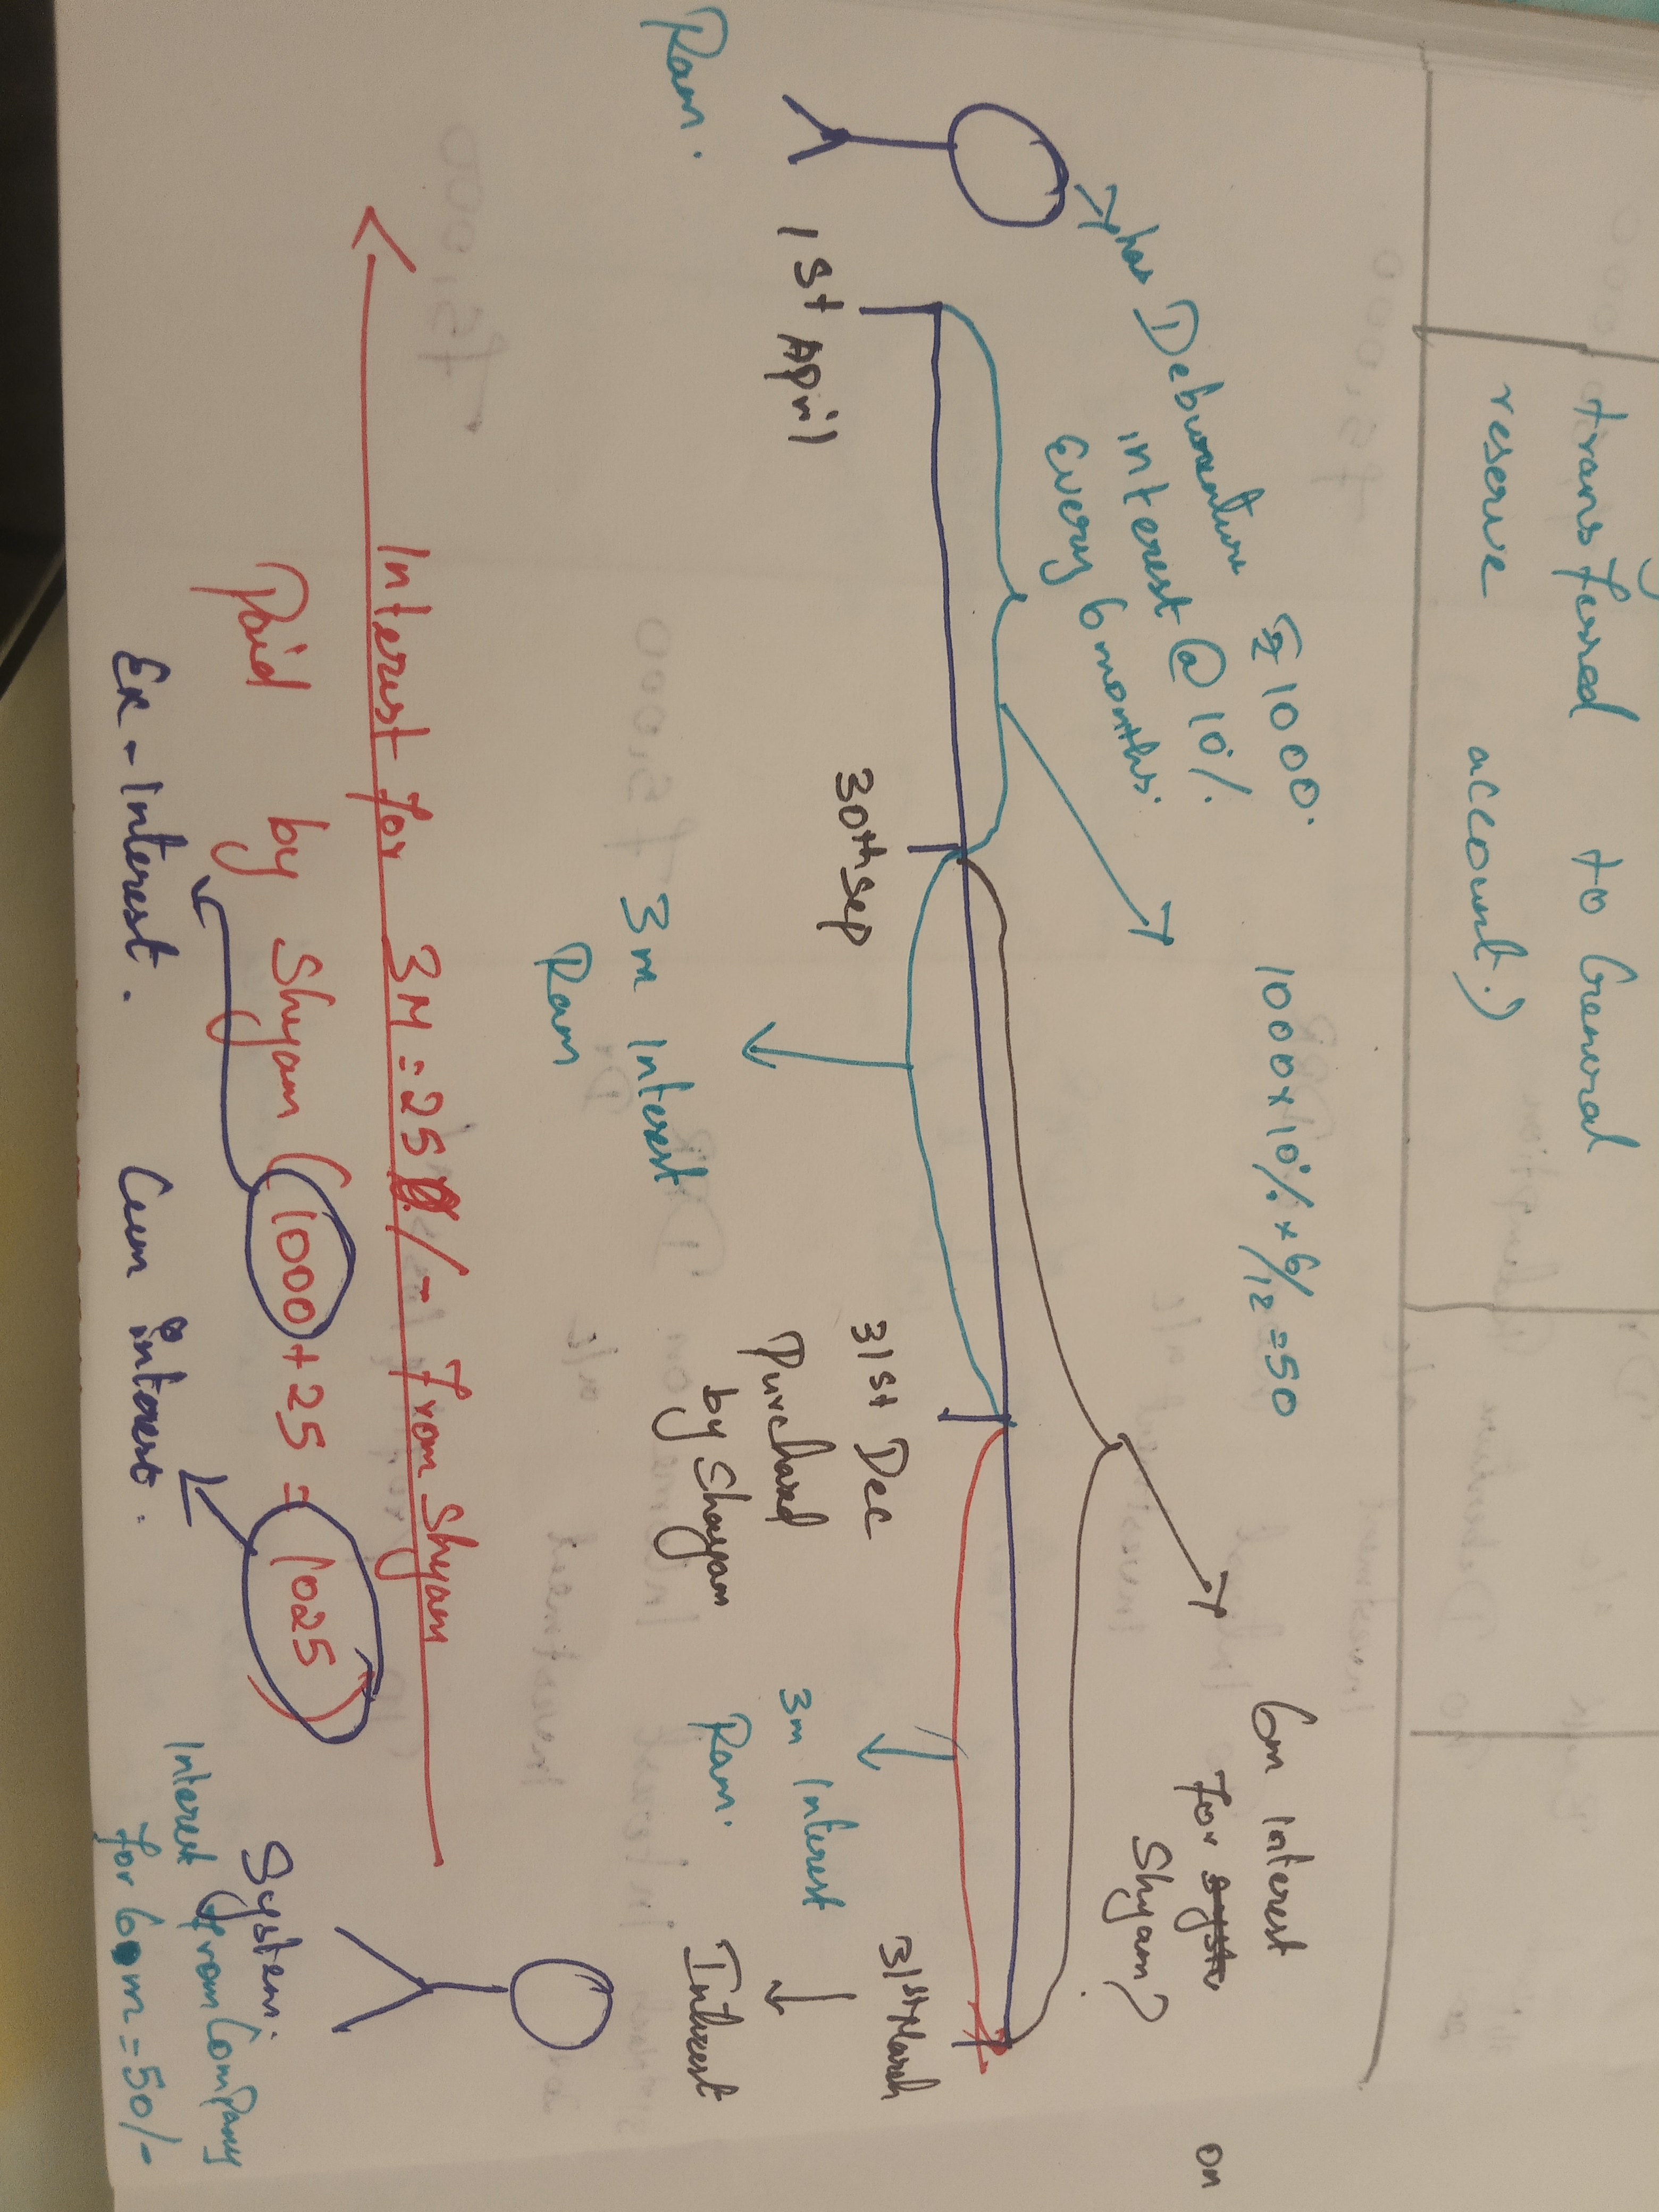 transferred to General
reserve account.)
→ has Debenture ₹ 1000.
interest @ 10%
Every 6 months.
1000 x 10% x 6/12 = 50
6m interest
for syste
Shyam?
on
1st April
30th Sep
31st Dec
Purchased
by Shayam
31st March
↓
Interest
Ram.
3m interest
Ram
3m interest
Ram.
Interest for 3M = 25/- from Shyam
Paid by Shyam (1000 + 25 = 1025)
Ex - interest.
Cum interest.
System.
Interest from Company
for 6m = 50/-